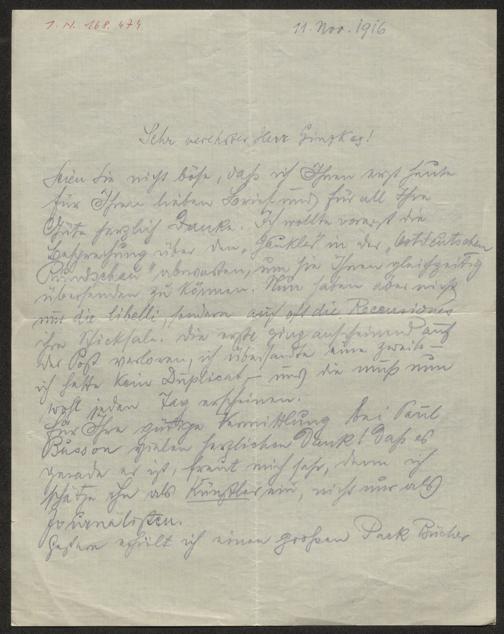 J. N. 168.474
11. Nov. 1916
Sehr verehrter Herr Ginzkey!
Seien Sie nicht böse, daß ich Ihnen erst heute
für Ihren lieben Brief und für all Ihre
Güte herzlich danke. Ich wollte vorerst die
Besprechung über den „Gaukler" in der „Ostdeutschen
Rundschau" abwarten, um sie Ihnen gleichzeitig
übersenden zu können. Nun haben aber nicht
nur die libelli, sondern auch oft die Recensiones
ihre Schicksale. Die erste ging anscheinend auf
der Post verloren, ich übersandte eine zweite –
ich hatte kein Duplicat – und die muß nun
wohl jeden Tag erscheinen.
Für Ihre gütige Vermittlung bei Paul
Busson vielen herzlichen Dank! Daß es
gerade er ist, freut mich sehr, denn ich
schätze ihn als Künstler ein, nicht nur als
Journalisten.
Gestern erhielt ich einen großen Pack Bücher